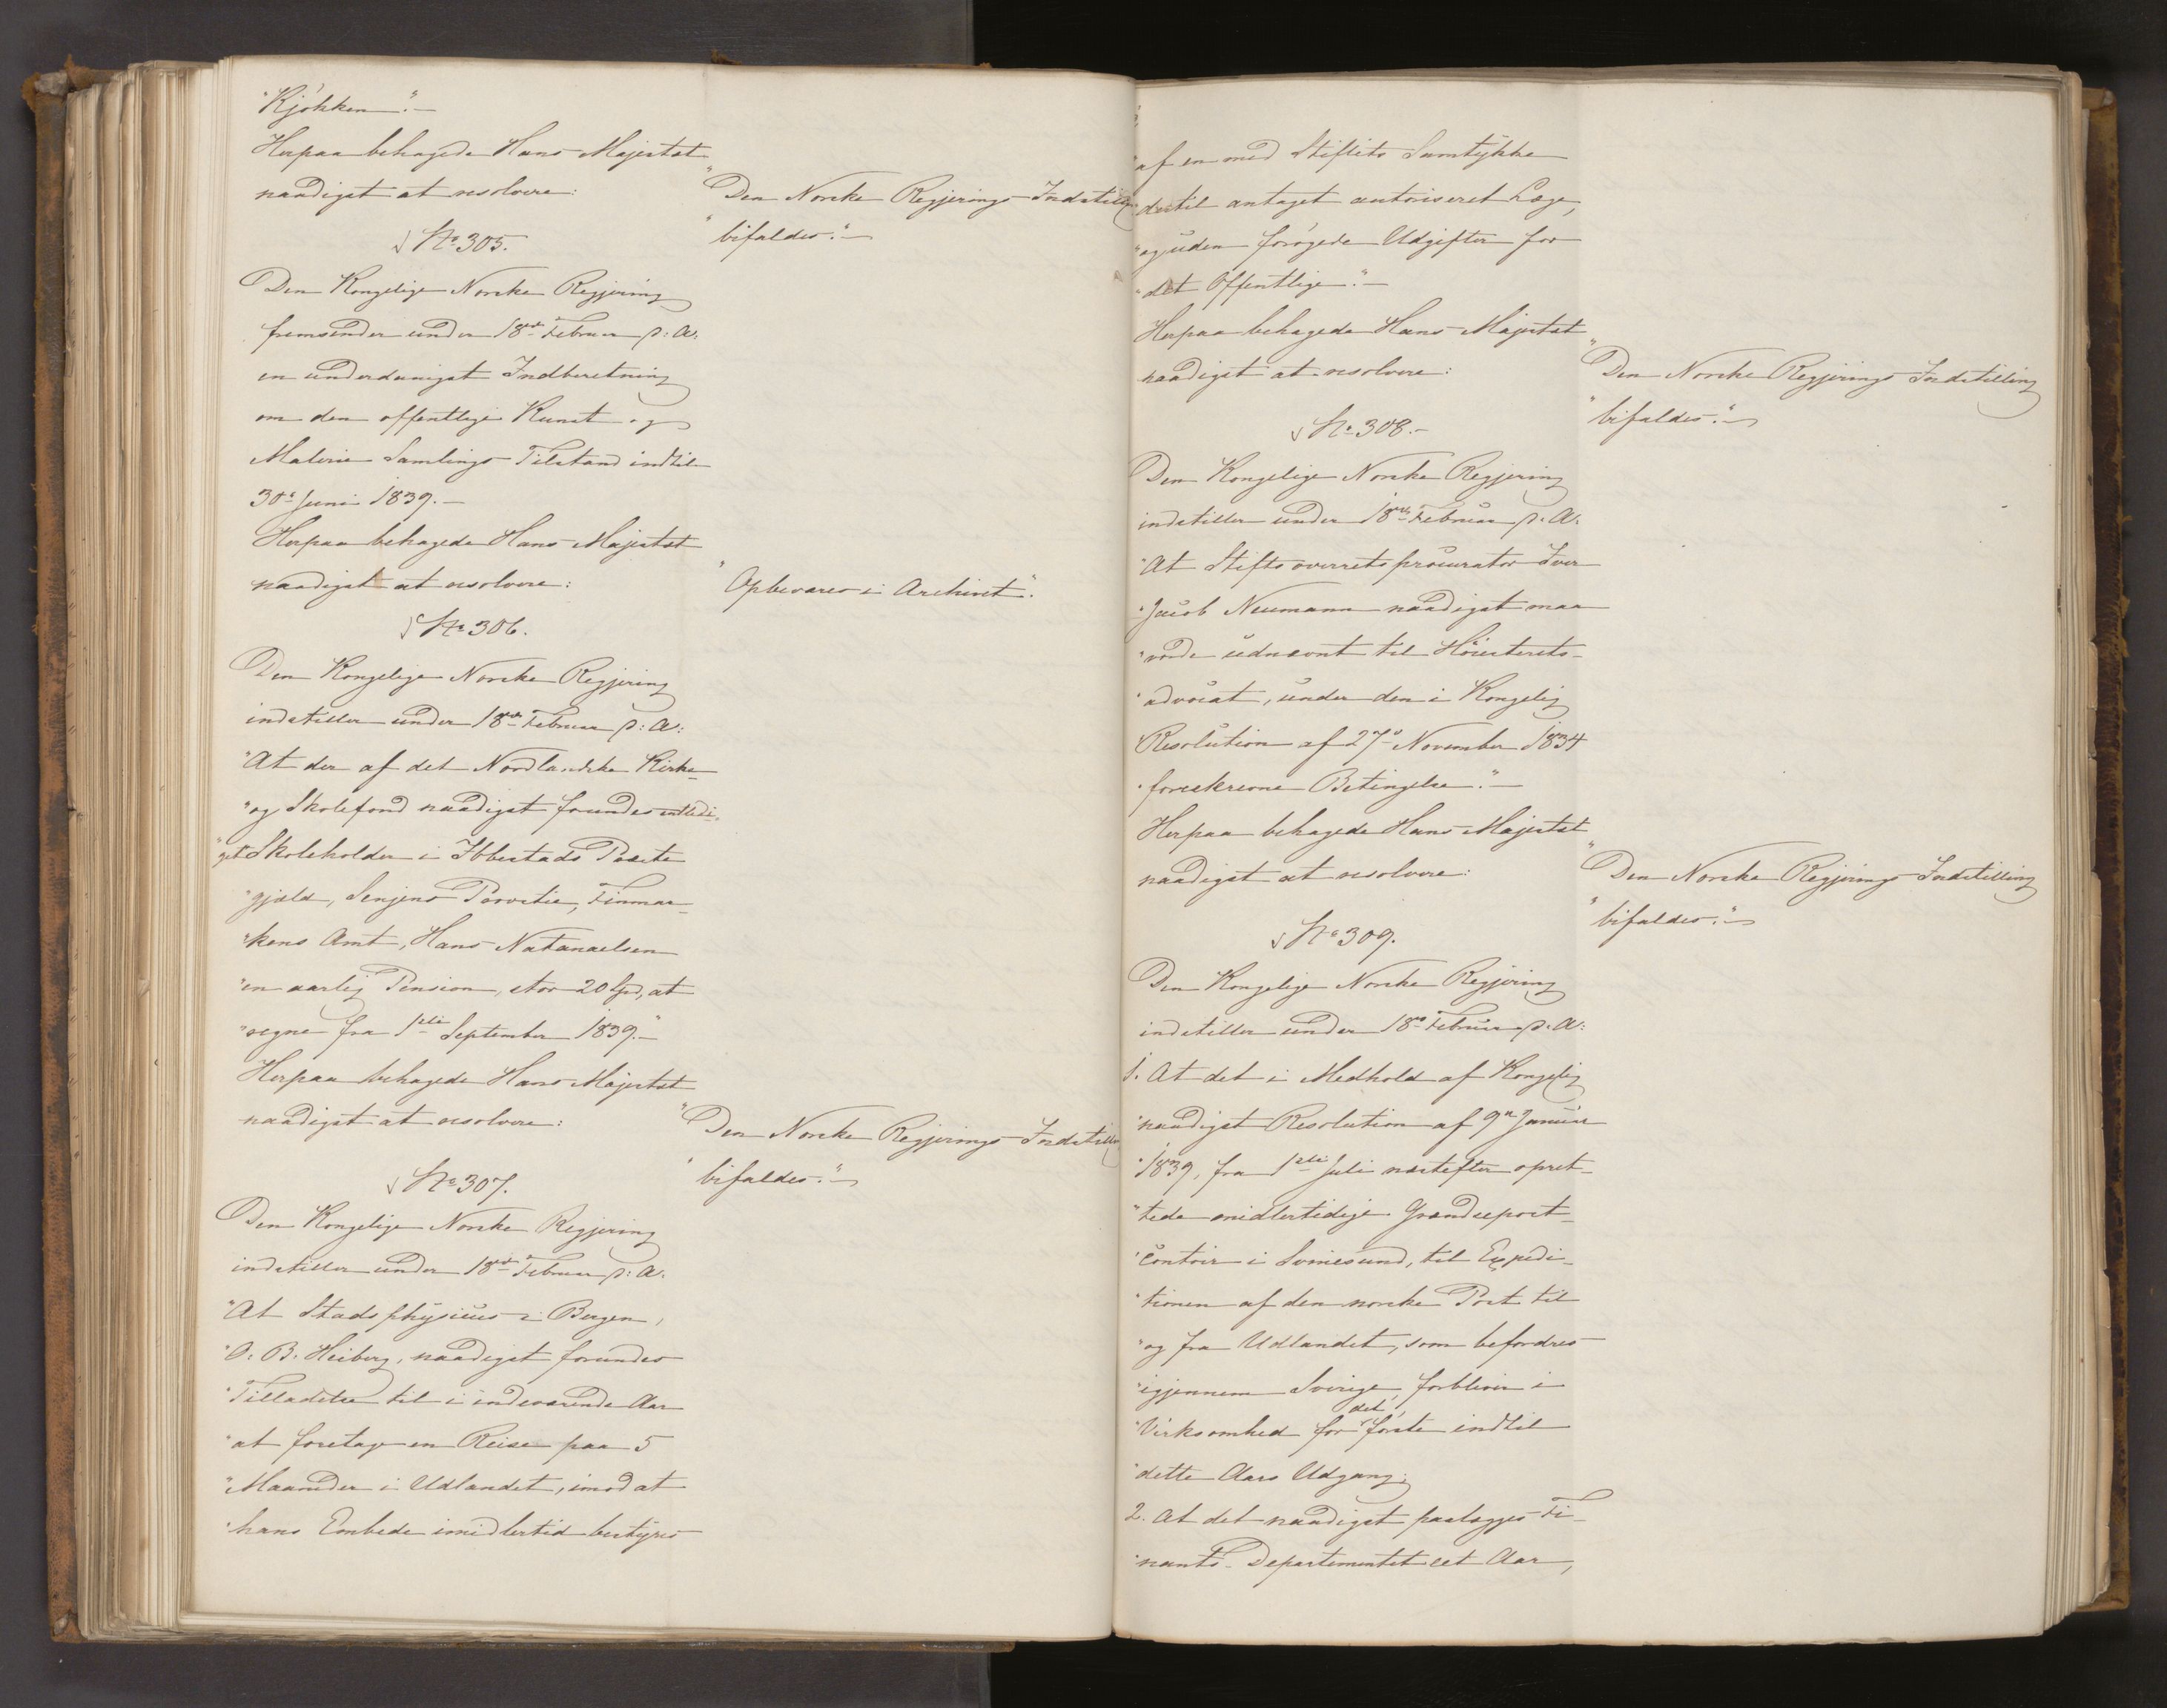 "Kjökken".-
Herpaa behagede Hans Majestæt
naadigst at resolvere:
"Den Norske Regjerings Indstilling
"bifaldes."-
No 305.
Den Kongelige Norske Regjering
fremsender under 18de Februar d: A:
en underdanigst Indberetning
om den offentlige Kunst og
Malerie Samlings Tilstand indtil
30te Juni 1839.-
Herpaa behagede Hans Majestæt
naadigst at resolvere:
"Opbevares i Archivet".
No 306.
Den Kongelige Norske Regjering
indstiller under 18de Februar d: A:
"At der af det Nordlandske Kirke
"og Skolefond naadigst forundes entledi-
"get Skoleholder i Ibbestads Præste
"gjæld, Senjens Provstie, Finmar-
"kens Amt, Hans Natanaelsen
"en aarlig Pension, stor 20 Spd, at
"regne fra 1ste September 1839."-
Herpaa behagede Hans Majestæt
naadigst at resolvere:
"Den Norske Regjerings Indstilling
"bifaldes."-
No 307.
Den Kongelige Norske Regjering
indstiller under 18de Februar d: A:
"At Stadsphysicus i Bergen,
"O: B: Heiberg, naadigst forundes
"Tilladelse til i indeværende Aar
"at foretage en Reise paa 5
"Maaneder i Udlandet, imod at
"hans Embede imidlertid bestyres
"af en med Stiftets Samtykke
"dertil antaget autoriseret Læge,
"og uden forögede Udgifter for
"det Offentlige."-
Herpaa behagede Hans Majestæt
naadigst at resolvere:
"Den Norske Regjerings Indstilling
"bifaldes."-
No 308.-
Den Kongelige Norske Regjering
indstiller under 18de Februar d: A:
"At Stiftsoverretsprocurator Iver
"Jacob Neumann naadigst maa
"vorde udnævnt til Höiesterets-
"advocat, under den i Kongelig
"Resolution af 27de November 1834
"foreskrevne Betingelse."-
Herpaa behagede Hans Majestæt
naadigst at resolvere:
"Den Norske Regjerings Indstilling
"bifaldes."-
No 309.
Den Kongelige Norske Regjering
indstiller under 18de Februar d: A:
1. At det i Medhold af Kongelig
"naadigst Resolution af 9de Januar
"1839, fra 1ste Juli næstefter opret-
"tede midlertidige Grændsepost-
"contoir i Svinesund, til Expedi-
"tionen af den norske Post til
"og fra Udlandet, som befordres
"igjennem Sverige, forbliver i
"Virksomhed for det förste indtil
"dette Aars Udgang;
2. At det naadigst paalægges Fi-
"nants-Departementet et Aar,